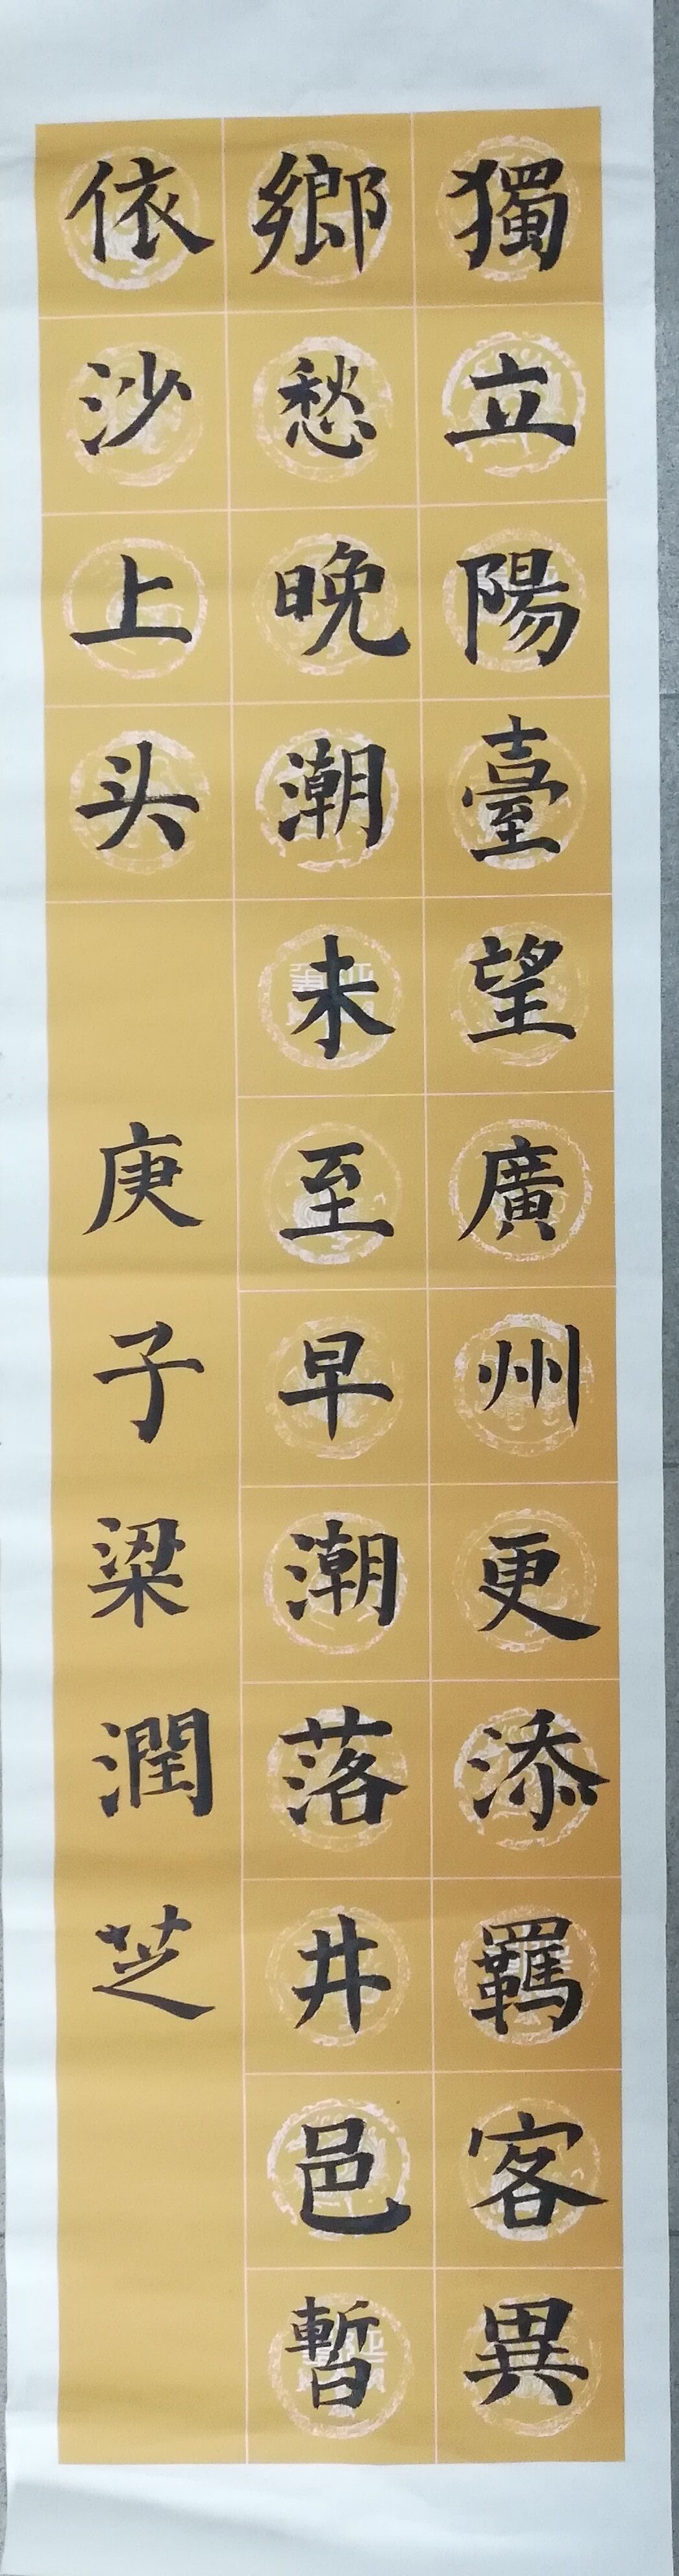 獨立陽臺望廣州更添羈客異
鄉愁晚潮未至早潮落井邑暫
依沙上头
庚子梁潤芝